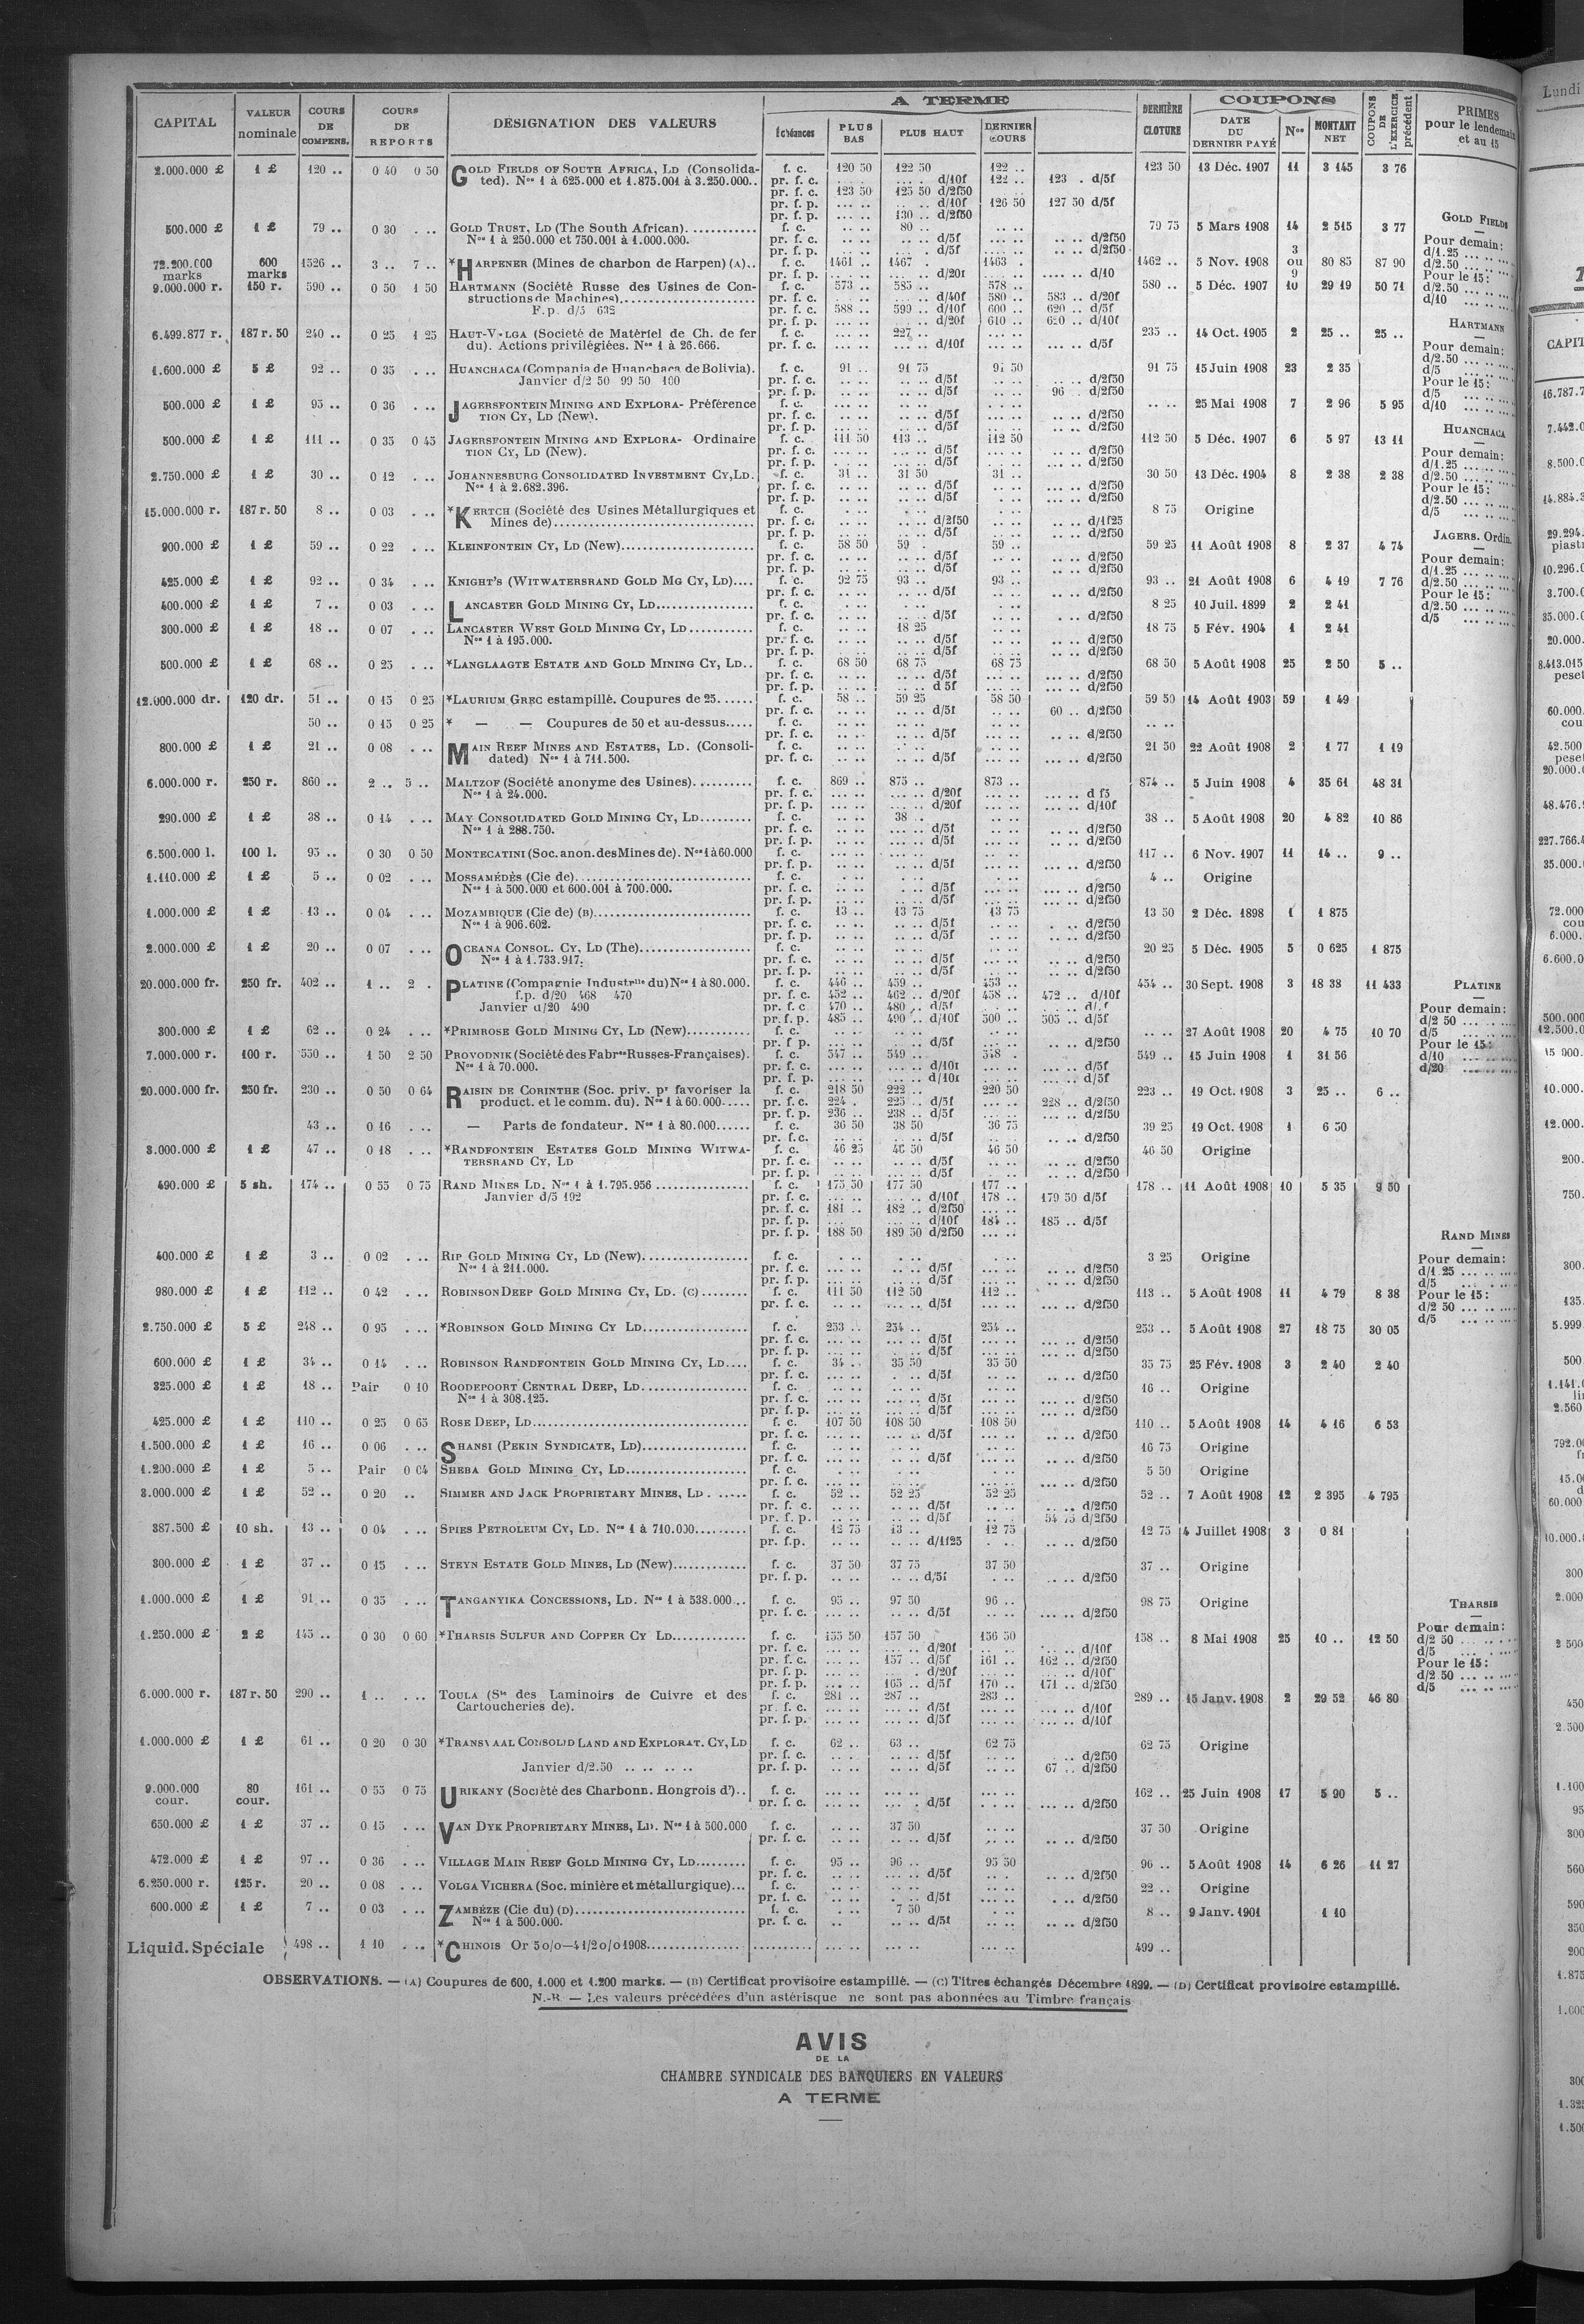 A TERME
COUPONS
CAPITAL
VALEUR nominale
COURS DE COMPENS.
COURS DE REPORTS
DÉSIGNATION DES VALEURS
Échéances
PLUS BAS
PLUS HAUT
DERNIER COURS
DERNIÈRE CLOTURE
DATE DU DERNIER PAYÉ
Nos
MONTANT NET
COUPONS DE L'EXERCICE précédent
PRIMES pour le lendemain et au 15
2.000.000 £ 1 £ 120 .. 0 40 0 50 GOLD FIELDS OF SOUTH AFRICA, LD (Consolida- f. c. 120 50 122 50 122 .. 123 50 13 Déc. 1907 11 3 145 3 76
ted). Nos 1 à 625.000 et 1.875.001 à 3.250.000.. pr. f. c. .... .... d/10f 122 .. 123 . d/5f
pr. f. c. 123 50 125 50 d/2f50
pr. f. p. ... .. .. .. d/10f 126 50 127 50 d/5f
pr. f. p. ... .. 130 .. d/2f50
500.000 £ 1 £ 79 .. 0 30 . .. GOLD TRUST, LD (The South African)............ f. c. .. .. 80 .. .. .. 79 75 5 Mars 1908 14 2 515 3 77
Nos 1 à 250.000 et 750.001 à 1.000.000. pr. f. c. .. .. .. .. d/5f ... .. .. .. d/2f50
pr. f. p. .. .. .. . d/5f .. .. .. .. d/2f50
72.200.000 marks 600 marks 1526 .. 3 .. 7 .. *HARPENER (Mines de charbon de Harpen) (A).. f. c. 1461 .. 1467 . 1463 . 1462 .. 5 Nov. 1908 3 ou 9 80 85 87 90
pr. f. p. ... .. .... .. d/20f ... .. .... .. d/10
9.000.000 r. 150 r. 590 .. 0 50 1 50 HARTMANN (Société Russe des Usines de Con- f. c. 573 .. 585 .. 578 .. 580 .. 5 Déc. 1907 10 29 19 50 71
structions de Machines)...................... pr. f. c. ... .. .... .. d/40f 580 .. 583 .. d/20f
F.p. d/5 632 pr. f. c. 588 .. 599 .. d/10f 600 .. 620 .. d/5f
pr. f. p. ... .. ... .. d/20f 610 .. 620 .. d/10f
6.499.877 r. 187 r. 50 240 .. 0 25 1 25 HAUT-VOLGA (Societé de Matèriel de Ch. de fer f. c. .. .. 227 .. ... .. 235 .. 14 Oct. 1905 2 25 .. 25 ..
du). Actions privilégiées. Nos 1 à 26.666. pr. f. c. ... .. ... .. d/10f ... .. ... .. d/5f
1.600.000 £ 5 £ 92 .. 0 35 . .. HUANCHACA (Compania de Huanchaca de Bolivia). f. c. 91 .. 91 75 91 50 91 75 15 Juin 1908 23 2 35
Janvier d/2 50 99 50 100 pr. f. c. .. .. .. .. d/5f .. .. .. .. d/2f50
pr. f. p. .. .. .. .. d/5f .. .. 96 . d/2f50
500.000 £ 1 £ 95 .. 0 36 . .. JAGERSFONTEIN MINING AND EXPLORA- Préférence f. c. .. .. .. .. .. .. .. .. 25 Mai 1908 7 2 96 5 95
TION CY, LD (New). pr. f. c. .. .. .. .. d/5f .. .. .. .. d/2f50
pr. f. p. .. .. .. .. d/5f .. .. .. .. d/2f50
500.000 £ 1 £ 111 .. 0 35 0 45 JAGERSFONTEIN MINING AND EXPLORA- Ordinaire f. c. 111 50 113 .. 112 50 112 50 5 Déc. 1907 6 5 97 13 11
TION CY, LD (New). pr. f. c. .. .. .. .. d/5f .. .. ... .. d/2f50
pr. f. p. .. .. .. .. d/5f .. .. .. .. d/2f50
2.750.000 £ 1 £ 30 .. 0 12 . .. JOHANNESBURG CONSOLIDATED INVESTMENT CY,LD. f. c. 31 .. 31 50 31 .. 30 50 13 Déc. 1904 8 2 38 2 38
Nos 1 à 2.682.396. pr. f. c. .. .. .. .. d/5f .. .. ... .. d/2f50
pr. f. p. .. .. .. .. d/5f .. .. ... .. d/2f50
15.000.000 r. 187 r. 50 8 .. 0 03 . .. *KERTCH (Société des Usines Métallurgiques et f. c. .. .. . .. . .. 8 75 Origine
Mines de)................................. pr. f. c. .. .. .. .. d/2f50 .. .. .. .. d/1f25
pr. f. p. .. .. .. .. d/5f .. .. .. .. d/2f50
900.000 £ 1 £ 59 .. 0 22 . .. KLEINFONTEIN CY, LD (New)...................... f. c. 58 50 59 . 59 .. 59 25 11 Août 1908 8 2 37 4 74
pr. f. c. .. .. .. .. d/5f .. .. ... .. d/2f50
pr. f. p. .. .. .. .. d/5f .. .. .. .. d/2f50
425.000 £ 1 £ 92 .. 0 34 . .. KNIGHT'S (WITWATERSRAND GOLD MG CY, LD).... f. c. 92 75 93 .. 93 .. 93 .. 21 Août 1908 6 4 19 7 76
pr. f. c. .. .. .. .. d/5f .. .. .. .. d/2f50
400.000 £ 1 £ 7 .. 0 03 . .. LANCASTER GOLD MINING CY, LD................. f. c. . .. . .. . .. 8 25 10 Juil. 1899 2 2 41
pr. f. c. .. .. .. .. d/5f .. .. . .. d/2f50
300.000 £ 1 £ 18 .. 0 07 . .. LANCASTER WEST GOLD MINING CY, LD........... f. c. .. .. 18 25 .. .. 18 75 5 Fév. 1904 1 2 41
Nos 1 à 195.000. pr. f. c. .. .. .. .. d/5f .. .. ... .. d/2f50
pr. f. p. .. .. .. .. d/5f .. .. .. .. d/2f50
500.000 £ 1 £ 68 .. 0 25 . .. *LANGLAAGTE ESTATE AND GOLD MINING CY, LD.. f. c. 68 50 68 75 68 75 68 50 5 Août 1908 25 2 50 5 ..
pr. f. c. .. .. .. .. d/5f ... .. ... .. d/2f50
pr. f. p. .. .. .. .. d 5f ... .. ... .. d/2f50
12.000.000 dr. 120 dr. 51 .. 0 15 0 25 *LAURIUM GREC estampillé. Coupures de 25...... f. c. 58 .. 59 25 58 50 59 50 14 Août 1903 59 1 49
pr. f. c. .. .. .. .. d/5f .. .. 60 .. d/2f50
50 .. 0 15 0 25 * — — Coupures de 50 et au-dessus..... f. c. .. .. .. .. .. .. .. ..
pr. f. c. .. .. .. .. d/5f .. .. ... .. d/2f50
800.000 £ 1 £ 21 .. 0 08 . .. MAIN REEF MINES AND ESTATES, LD. (Consoli- f. c. .. .. . .. .. .. 21 50 22 Août 1908 2 1 77 1 19
dated) Nos 1 à 711.500. pr. f. c. .. .. .. .. d/5f .. .. ... .. d/2f50
6.000.000 r. 250 r. 860 .. 2 .. 5 .. MALTZOF (Société anonyme des Usines).......... f. c. 869 .. 875 .. 873 .. 874 .. 5 Juin 1908 4 35 61 48 31
Nos 1 à 24.000. pr. f. c. ... .. ... .. d/20f ... .. ... .. d f5
pr. f. p. ... .. ... .. d/20f ... .. ... .. d/10f
290.000 £ 1 £ 38 .. 0 14 . .. MAY CONSOLIDATED GOLD MINING CY, LD......... f. c. .. .. 38 .. .. .. 38 .. 5 Août 1908 20 4 82 10 86
Nos 1 à 288.750. pr. f. c. .. .. ... .. d/5f .. .. .. .. d/2f50
pr. f. p. .. .. ... .. d/5f .. .. .. .. d/2f50
6.500.000 l. 100 l. 95 .. 0 30 0 50 MONTECATINI (Soc. anon. des Mines de). Nos 1 à 60.000 f. c. .. .. .. .. .. .. 117 .. 6 Nov. 1907 11 14 .. 9 ..
pr. f. p. .. .. .. .. d/5f ... .. ... .. d/2f50
1.110.000 £ 1 £ 5 .. 0 02 . .. MOSSAMÉDÈS (Cie de)............................. f. c. . .. . .. . .. 4 .. Origine
Nos 1 à 500.000 et 600.001 à 700.000. pr. f. c. .. .. .. .. d/5f ... .. ... .. d/2f50
pr. f. p. .. .. .. .. d/5f ... .. ... .. d/2f50
1.000.000 £ 1 £ 13 .. 0 04 . .. MOZAMBIQUE (Cie de) (B).......................... f. c. 13 .. 13 75 13 75 13 50 2 Déc. 1898 1 1 875
Nos 1 à 906.602. pr. f. c. .. .. .. .. d/5f .. .. .. .. d/2f50
pr. f. p. .. .. .. .. d/5f .. .. .. .. d/2f50
2.000.000 £ 1 £ 20 .. 0 07 . .. OCEANA CONSOL. CY, LD (The).................. f. c. .. .. .. .. .. .. 20 25 5 Déc. 1905 5 0 625 1 875
Nos 1 à 1.733.917. pr. f. c. .. .. .. .. d/5f .. .. ... .. d/2f50
pr. f. p. .. .. .. .. d/5f .. .. .. .. d/2f50
20.000.000 fr. 250 fr. 402 .. 1 .. 2 . PLATINE (Compagnie Industrlle du) Nos 1 à 80.000. f. c. 446 .. 459 .. 453 .. 454 .. 30 Sept. 1908 3 18 38 11 433
f.p. d/20 468 470 pr. f. c. 452 .. 462 .. d/20f 458 .. 472 .. d/10f
Janvier d/20 490 pr. f. c 470 .. 480 .. d/5f
pr. f. p. 485 .. 490 .. d/10f 500 .. 505 .. d/5f
300.000 £ 1 £ 62 .. 0 24 . .. *PRIMROSE GOLD MINING CY, LD (New)........... f. c. .. .. .. .. .. .. .. .. 27 Août 1908 20 4 75 10 70
pr. f p. .. .. .. .. d/5f .. .. ... .. d/2f50
7.000.000 r. 100 r. 550 .. 1 50 2 50 PROVODNIK (Société des Fabres Russes-Françaises). f. c. 547 .. 549 .. 548 . 549 .. 15 Juin 1908 1 31 56
Nos 1 à 70.000. pr. f. c. ... .. ... .. d/10f ... .. ... .. d/5f
pr. f. p. ... .. ... .. d/10f ... .. ... .. d/5f
20.000.000 fr. 250 fr. 230 .. 0 50 0 64 RAISIN DE CORINTHE (Soc. priv. pr favoriser la f. c. 218 50 222 .. 220 50 223 .. 19 Oct. 1908 3 25 .. 6 ..
product. et le comm. du). Nos 1 à 60.000..... pr. f. c. 224 . 225 .. d/5f ... .. 228 .. d/2f50
pr. f. p. 236 .. 238 .. d/5f ... .. ... .. d/2f50
43 .. 0 16 . .. — Parts de fondateur. Nos 1 à 80.000...... f. c. 36 50 38 50 36 75 39 25 19 Oct. 1908 1 6 50
pr. f. c. .. .. .. .. d/5f .. .. .. .. d/2f50
3.000.000 £ 1 £ 47 .. 0 18 . .. *RANDFONTEIN ESTATES GOLD MINING WITWA- f. c. 46 25 46 50 46 50 46 50 Origine
TERSRAND CY, LD pr. f. c. .. .. .. .. d/5f .. .. .. .. d/2f50
pr. f. p. .. .. .. .. d/5f .. .. .. .. d/2f50
490.000 £ 5 sh. 174 .. 0 55 0 75 RAND MINES LD. Nos 1 à 1.795.956 ................ f. c. 175 50 177 50 177 .. 178 .. 11 Août 1908 10 5 35 9 50
Janvier d/5 192 pr. f. c. ... .. ... .. d/10f 178 .. 179 50 d/5f
pr. f. c. 181 .. 182 .. d/2f50 ... ..
pr. f. p. ... ... .. d/10f 184 .. 185 .. d/5f
pr. f. p. 188 50 189 50 d/2f50 ... ..
400.000 £ 1 £ 3 .. 0 02 . .. RIP GOLD MINING CY, LD (New)................. f. c. . .. . .. . .. 3 25 Origine
Nos 1 à 211.000. pr. f. c. ... .. ... .. d/5f ... .. .. .. d/2f50
pr. f. p. ... .. ... .. d/5f ... .. .. .. d/2f50
980.000 £ 1 £ 112 .. 0 42 . .. ROBINSON DEEP GOLD MINING CY, LD. (C)........ f. c. 111 50 112 50 112 .. 113 .. 5 Août 1908 11 4 79 8 38
pr. f. c. .. .. ... .. d/5f ... .. ... .. d/2f50
2.750.000 £ 5 £ 248 .. 0 95 . .. *ROBINSON GOLD MINING CY LD................. f. c. 253 .. 254 .. 254 .. 253 .. 5 Août 1908 27 18 75 30 05
pr. f. c. ... .. ... .. d/5f ... .. ... .. d/2f50
pr. f. p. ... .. ... .. d/5f ... .. ... .. d/2f50
600.000 £ 1 £ 34 .. 0 14 . .. ROBINSON RANDFONTEIN GOLD MINING CY, LD.... f. c. 34 .. 35 50 35 50 35 75 25 Fév. 1908 3 2 40 2 40
pr. f. c. .. .. .. . d/5f .. .. ... .. d/2f50
325.000 £ 1 £ 18 .. Pair 0 10 ROODEPOORT CENTRAL DEEP, LD................. f. c. .. .. .. .. .. .. 16 .. Origine
Nos 1 à 308.125. pr. f. c. ... .. ... .. d/5f ... .. ... .. d/2f50
pr. f. p. ... .. ... .. d/5f ... .. ... .. d/2f50
425.000 £ 1 £ 110 .. 0 25 0 65 ROSE DEEP, LD................................... f. c. 107 50 108 50 108 50 110 .. 5 Août 1908 14 4 16 6 53
pr. f. c. ... .. ... .. d/5f ... .. ... .. d/2f50
1.500.000 £ 1 £ 16 .. 0 06 . .. SHANSI (PEKIN SYNDICATE, LD)................. f. c. .. .. .. .. .. .. 16 75 Origine
pr. f. c. ... .. ... .. d/5f ... .. .. .. d/2f50
1.200.000 £ 1 £ 5 .. Pair 0 04 SHEBA GOLD MINING CY, LD..................... f. c. . .. . .. . .. 5 50 Origine
pr. f. c. ... .. ... .. ... .. ... .. d/2f50
3.000.000 £ 1 £ 52 .. 0 20 .. SIMMER AND JACK PROPRIETARY MINES, LD . ..... f. c. 52 .. 52 25 52 25 52 .. 7 Août 1908 12 2 395 4 795
pr. f. c. .. .. .. .. d/5f .. .. .. .. d/2f50
pr. f. p. .. .. .. .. d/5f .. .. 54 75 d/2f50
387.500 £ 10 sh. 13 .. 0 04 . .. SPIES PETROLEUM CY, LD. Nos 1 à 710.000......... f. c. 12 75 13 .. 12 75 12 75 4 Juillet 1908 3 0 81
pr. f.p. .. .. .. .. d/1f25 . .. .. .. d/2f50
300.000 £ 1 £ 37 .. 0 15 . .. STEYN ESTATE GOLD MINES, LD (New)............. f. c. 37 50 37 75 37 50 37 .. Origine
pr. f. p. .. .. .. .. d/5f . .. .. .. d/2f50
1.000.000 £ 1 £ 91 .. 0 35 . .. TANGANYIKA CONCESSIONS, LD. Nos 1 à 538.000... f. c. 95 .. 97 50 96 .. 98 75 Origine
pr. f. c. ... .. ... .. d/5f .. .. ... .. d/2f50
1.250.000 £ 2 £ 145 .. 0 30 0 60 *THARSIS SULFUR AND COPPER CY LD............ f. c. 155 50 157 50 156 50 158 .. 8 Mai 1908 25 10 .. 12 50
pr. f. c. ... .. ... .. d/20f ... .. .. .. d/10f
pr. f. c. ... .. 157 .. d/5f 161 .. 162 .. d/2f50
pr. f. p. ... .. ... . d/20f ... .. ... .. d/10f
pr. f. p. ... .. 165 .. d/5f 170 .. 171 .. d/2f50
6.000.000 r. 187 r. 50 290 .. 1 .. . .. TOULA (Sté des Laminoirs de Cuivre et des f. c. 281 .. 287 .. 283 .. 289 .. 15 Janv. 1908 2 29 52 46 80
Cartoucheries de). pr. f. c. ... .. ... .. d/5f ... .. ... .. d/10f
pr. f. p. ... .. ... .. d/5f ... .. ... .. d/10f
1.000.000 £ 1 £ 61 .. 0 20 0 30 *TRANSVAAL CONSOLID LAND AND EXPLORAT. CY, LD f. c. 62 .. 63 .. 62 75 62 75 Origine
pr. f. c. .. .. .. .. d/5f .. .. .. d/2f50
Janvier d/2.50 .. .. .. .. pr. f. p. .. .. .. .. d/5f .. .. 67 .. d/2f50
9.000.000 cour. 80 cour. 161 .. 0 55 0 75 URIKANY (Société des Charbonn. Hongrois d').. f. c. ... .. ... .. ... .. 162 .. 25 Juin 1908 17 5 90 5 ..
pr. f. c. ... .. ... . d/5f . .. ... .. d/2f50
650.000 £ 1 £ 37 .. 0 15 . .. VAN DYK PROPRIETARY MINES, LD. Nos 1 à 500.000 f. c. .. .. 37 50 .. .. 37 50 Origine
pr. f. c. .. .. .. .. d/5f .. .. .. .. d/2f50
472.000 £ 1 £ 97 .. 0 36 . .. VILLAGE MAIN REEF GOLD MINING CY, LD......... f. c. 95 .. 96 .. 95 50 96 .. 5 Août 1908 14 6 26 11 27
pr. f. c. .. .. .. .. d/5f .. . .. .. d/2f50
6.250.000 r. 125 r. 20 .. 0 08 . .. VOLGA VICHERA (Soc. minière et métallurgique)... f. c. .. .. .. .. .. .. 22 .. Origine
pr. f. c. .. . .. .. d/5f ... .. . .. d/2f50
600.000 £ 1 £ 7 .. 0 03 . .. ZAMBÈZE (Cie du) (D)............................. f. c. . .. 7 50 . .. 8 .. 9 Janv. 1901 1 10
Nos 1 à 500.000. pr. f. c. .. .. .. d/5f .. .. .. .. d/2f50
Liquid. Spéciale 498 .. 1 10 . .. *CHINOIS Or 5 o/o—4 1/2 o/o 1908................ .......... ... .. ... .. ... .. 499 ..
GOLD FIELDS
Pour demain:
d/1.25 ... .. ...
d/2.50 ... .. ...
Pour le 15:
d/2.50 ... .. ...
d/10 ... .. ...
HARTMANN
Pour demain:
d/2.50 ... .. ...
d/5 ... .. ...
Pour le 15:
d/5 ... .. ...
d/10 ... .. ...
HUANCHACA
Pour demain:
d/1.25 ... .. ...
d/2.50 ... .. ...
Pour le 15:
d/2.50 ... .. ...
d/5 ... .. ...
JAGERS. Ordin.
Pour demain:
d/1.25 ... .. ...
d/2.50 ... .. ...
Pour le 15:
d/2.50 ... .. ...
d/5 ... .. ...
PLATINE
Pour demain:
d/2 50 ... .. ...
d/5 ... .. ...
Pour le 15:
d/10 ... .. ...
d/20 ... .. ...
RAND MINES
Pour demain:
d/1.25 ... .. ...
d/5 ... .. ...
Pour le 15:
d/2 50 ... .. ...
d/5 ... .. ...
THARSIS
Pour demain:
d/2 50 ... .. ...
d/5 ... .. ...
Pour le 15:
d/2 50 ... .. ...
d/5 ... .. ...
OBSERVATIONS. — (A) Coupures de 600, 1.000 et 1.200 marks. — (B) Certificat provisoire estampillé. — (C) Titres échangés Décembre 1899. — (D) Certificat provisoire estampillé.
N.-B — Les valeurs précédées d'un astérisque ne sont pas abonnées au Timbre français
AVIS
DE LA
CHAMBRE SYNDICALE DES BANQUIERS EN VALEURS
A TERME
Lundi